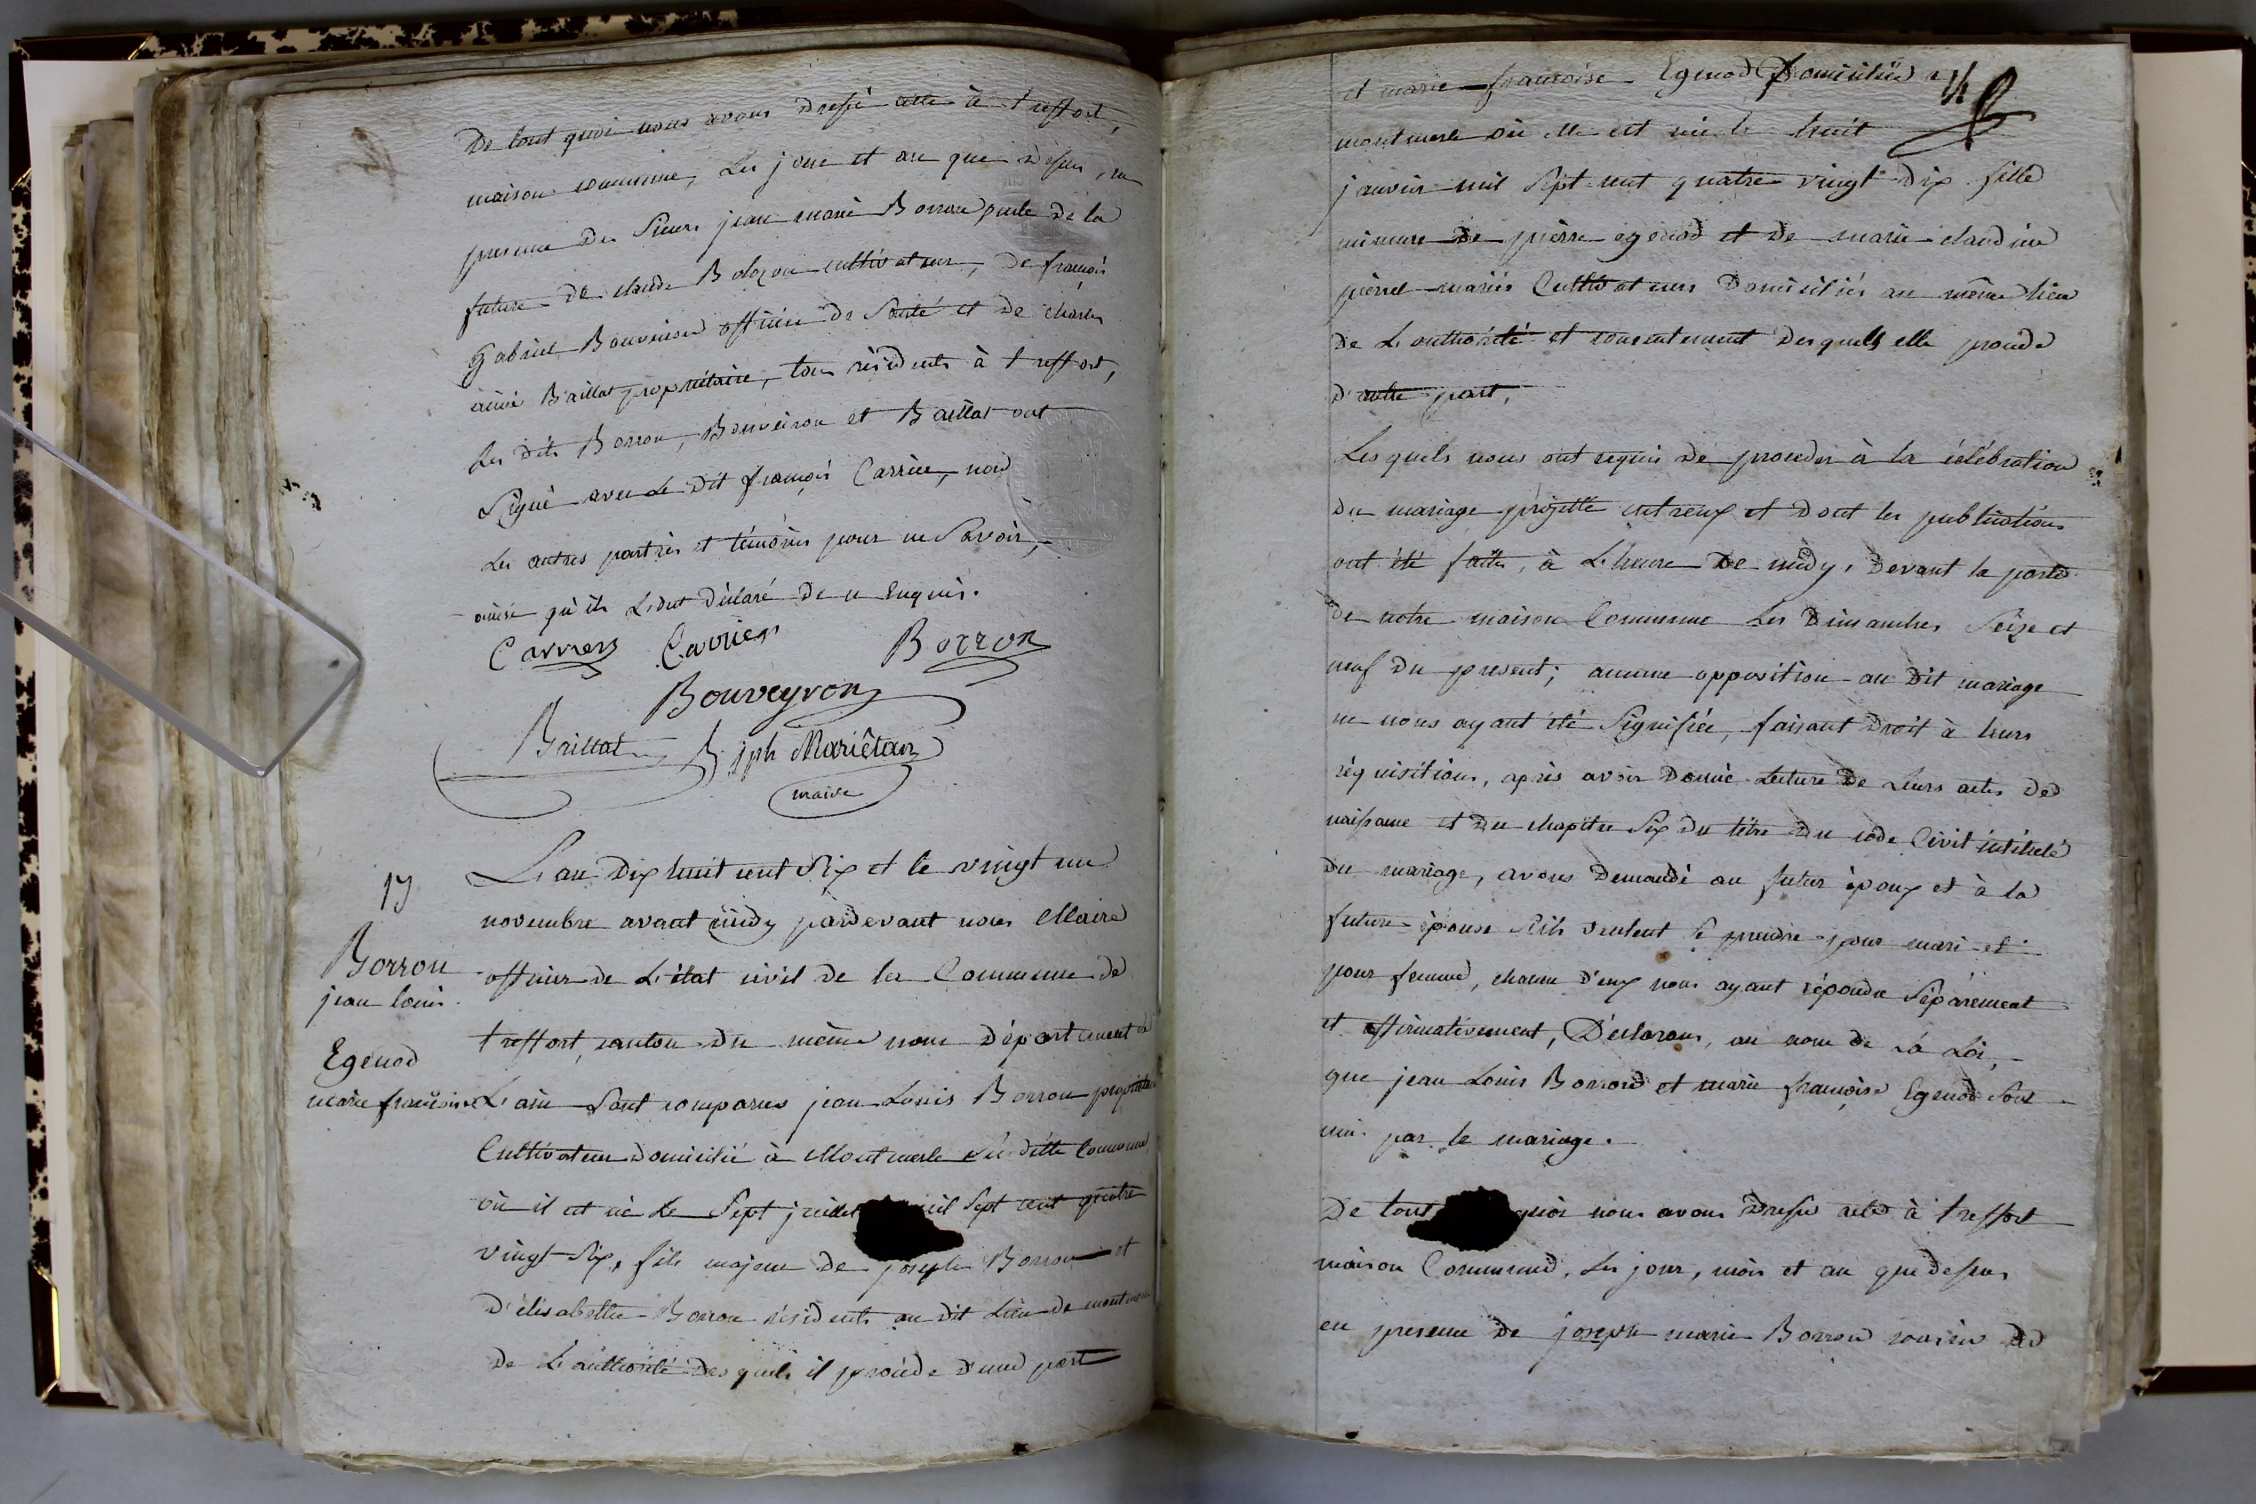 De tout quoi nous avons dressé acte à treffort,
maison commune, les jour et an que dessus, en
presence des Sieurs jean marie Borron oncle de la
future de claude Bolozon cultivateur, de françois
Gabriel Bouveiron officier de Santé et de charles
aimé Baillat propriétaire, tous résidents à treffort,
les dits Borron, Bouveiron et Baillat ont
Signé avec le dit françois Carrier, non
les autres parties et témoins pour ne Savoir,
ainsi qu'ils l'ont déclaré de ce Enquis.
Carriers Carrier Borron
Bouveyron
Baillat jph Mariêtan
maire
17
Borron
jean louis
Egenod
marie françoise
L'an Dix huit cent Six et le vingt un
novembre avant midy pardevant nous Maire
officier de L'état civil de la Commune de
treffort, canton du même nom département de
L'ain Sont comparus jean Louis Borron propriétaire
Cultivateur domicilié à Montmerle Susditte Commune
où il est né le Sept juillet mil Sept cent quatre
vingt Six, fils majeur de joseph Borron et
d'élisabethe Borron résidents au dit Lieu de montmerle
de L'authorité desquels il procéde d'une part
et marie françoise Egenod domiciliée à
montmerle où elle est née le huit
janvier mil Sept cent quatre vingt dix fille
mineure de pierre egenod et de marie claudine
mariés Cultivateurs domiciliés au même lieu
de L'authorité et consentement desquels elle procede
d'autre part.
Lesquels nous ont requis de proceder à la célébration
du mariage projetté entreux et dont les publications
ont été faites, à L'heure de midy, devant la porte
de notre maison Commune les Dimanches Seize et
neuf du present; aucune opposition au dit mariage
ne nous ayant été Signifiée, faisant droit à leurs
réquisitions, après avoir donné Lecture de Leurs actes de
naissance et du chapitre Six du titre du code Civil intitulé
du mariage, avons demandé au futur époux et à la
future épouse S'ils veulent se prendre pour mari et
pour femme, chacun d'eux nous ayant répondu Séparement
et affirmativement, Déclarons, au nom de La Loi,
que jean Louis Borron et marie françoise Egenod Sont
unis par le mariage.
De tout quoi nous avons dressé acte à treffort
maison Commune, les jour, mois et an que dessus
en presence de joseph marie Borron cousin de